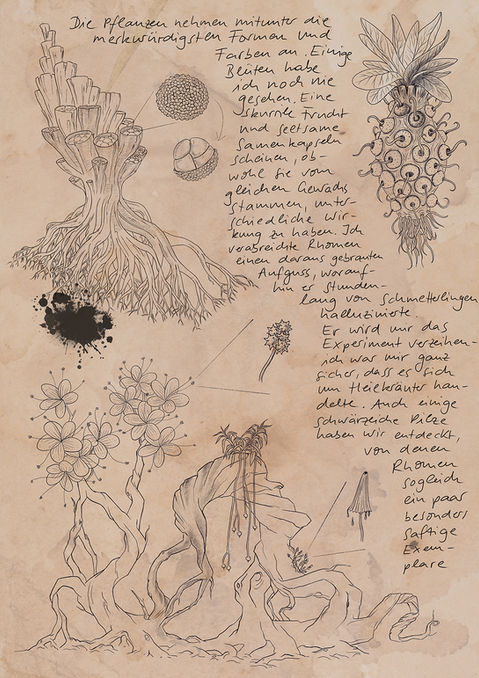 Die Pflanzen nehmen mitunter die
merkwürdigsten Formen und
Farben an. Einige
Blüten habe
ich noch nie
gesehen. Eine
skurrile Frucht
und seltsame
Samenkapseln
scheinen, ob-
wohl sie vom
gleichen Gewächs
stammen, unter-
schiedliche Wir-
kung zu haben. Ich
verabreichte Rhomen
einen daraus gebrauten
Aufguss, worauf-
hin er stunden-
lang von Schmetterlingen
halluzinierte.
Er wird mir das
Experiment verzeihen-
ich war mir ganz
sicher, dass es sich
um Heilkräuter han-
delte. Auch einige
schwärzliche Pilze
haben wir entdeckt,
von denen
Rhomen
sogleich
ein paar
besonders
saftige
Exem-
plare